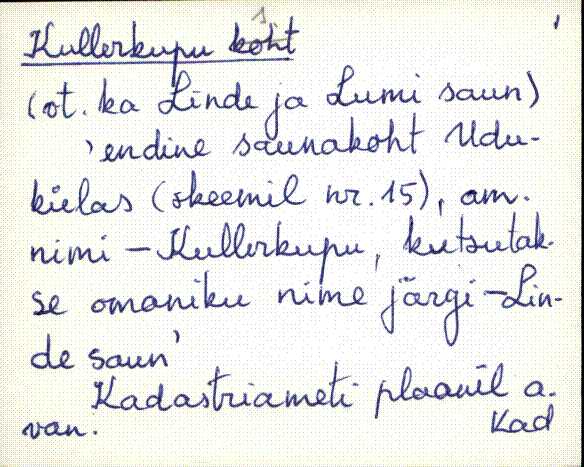 Kullerkupu koht
(ot. ka Linde ja Lumi saun)
'endine saunakoht Udu-
kielas (skeemil nr. 15), am.
nimi – Kullerkupu, kutsutak-
se omaniku nime järgi – Lin-
de saun'
Kadastriameti plaanil a.
van.
Kad